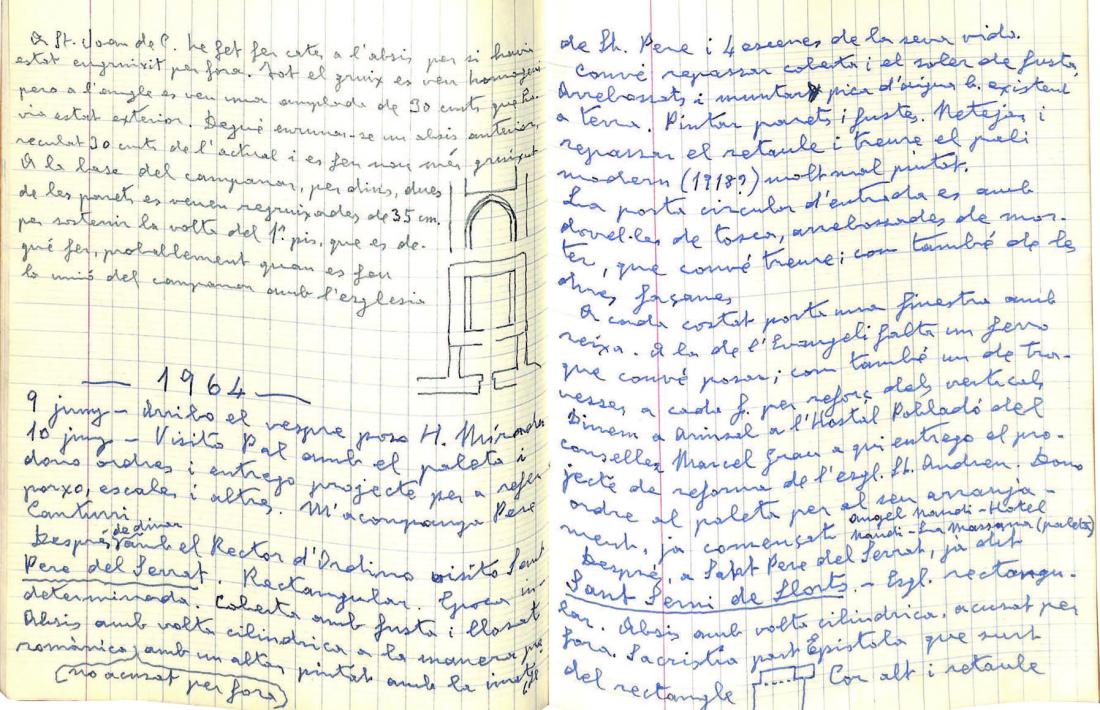 A St. Joan de C. he fet fer cata a l'absis per si havia
estat engruixit per fora. Tot el gruix es veu homogeni
pero a l'angle es veu una amplada de 30 cmts que ha-
via estat exterior. Degué enrunar-se un absis anterior,
reculat 30 cmts de l'actual i es feu nou més gruixut
A la base del campanar, per dins, dues
de les parets es veuen regruixades de 35 cm.
per sostenir la volta del 1er pis, que es de-
gué fer, probablement quan es feu
la unió del campanar amb l'esglesia
— 1964 —
9 juny - Arribo el vespre poso H. Mirador
10 juny - Visito Pal amb el paleta i
dono ordres i entrego projecte per a refer
porxo, escales i altres. M'acompanya Pere
Canturri
Després de dinar amb el Rector d'Ordino visito Sant
Pere del Serrat. Rectangular. Epoca in-
determinada. Coberta amb fusta i llosat
Absis amb volta cilindrica a la manera pre
romànica, amb un altar pintat amb la imatge
(no acusat per fora)
de St. Pere i 4 escenes de la seva vida.
Convé repassar coberta i el soler de fusta,
Arrebossats i muntar pica d'aigua b. existent
a terra. Pintar parets i fusta. Netejar i
repassar el retaule i treure el pali
modern (1918?) molt mal pintat.
La porta circular d'entrada es amb
dovel·les de tosca, arrebossades de mor-
ter, que convé treure; com també de les
altres façanes
A cada costat porta una finestra amb
reixa. A la de l'Evangeli falta un ferro
que convé posar; com també un de tra-
vesser a cada f. per reforç dels verticals
Dinem a Arinsal a l'Hostal Pobladó del
conseller Marcel Grau a qui entrego el pro-
jecte de reforma de l'esgl. St. Andreu. Dono
ordre al paleta per al seu arranja-
ment, ja començat Angel Nandi - Hotel
Nandi - La Massana (paleta)
Després, a Sant Pere del Serrat, ja dit
Sant Serni de Llorts. - Esgl. rectangu-
lar. Absis amb volta cilindrica, acusat per
fora. Sacristia part Epistola que surt
del rectangle Cor alt i retaule